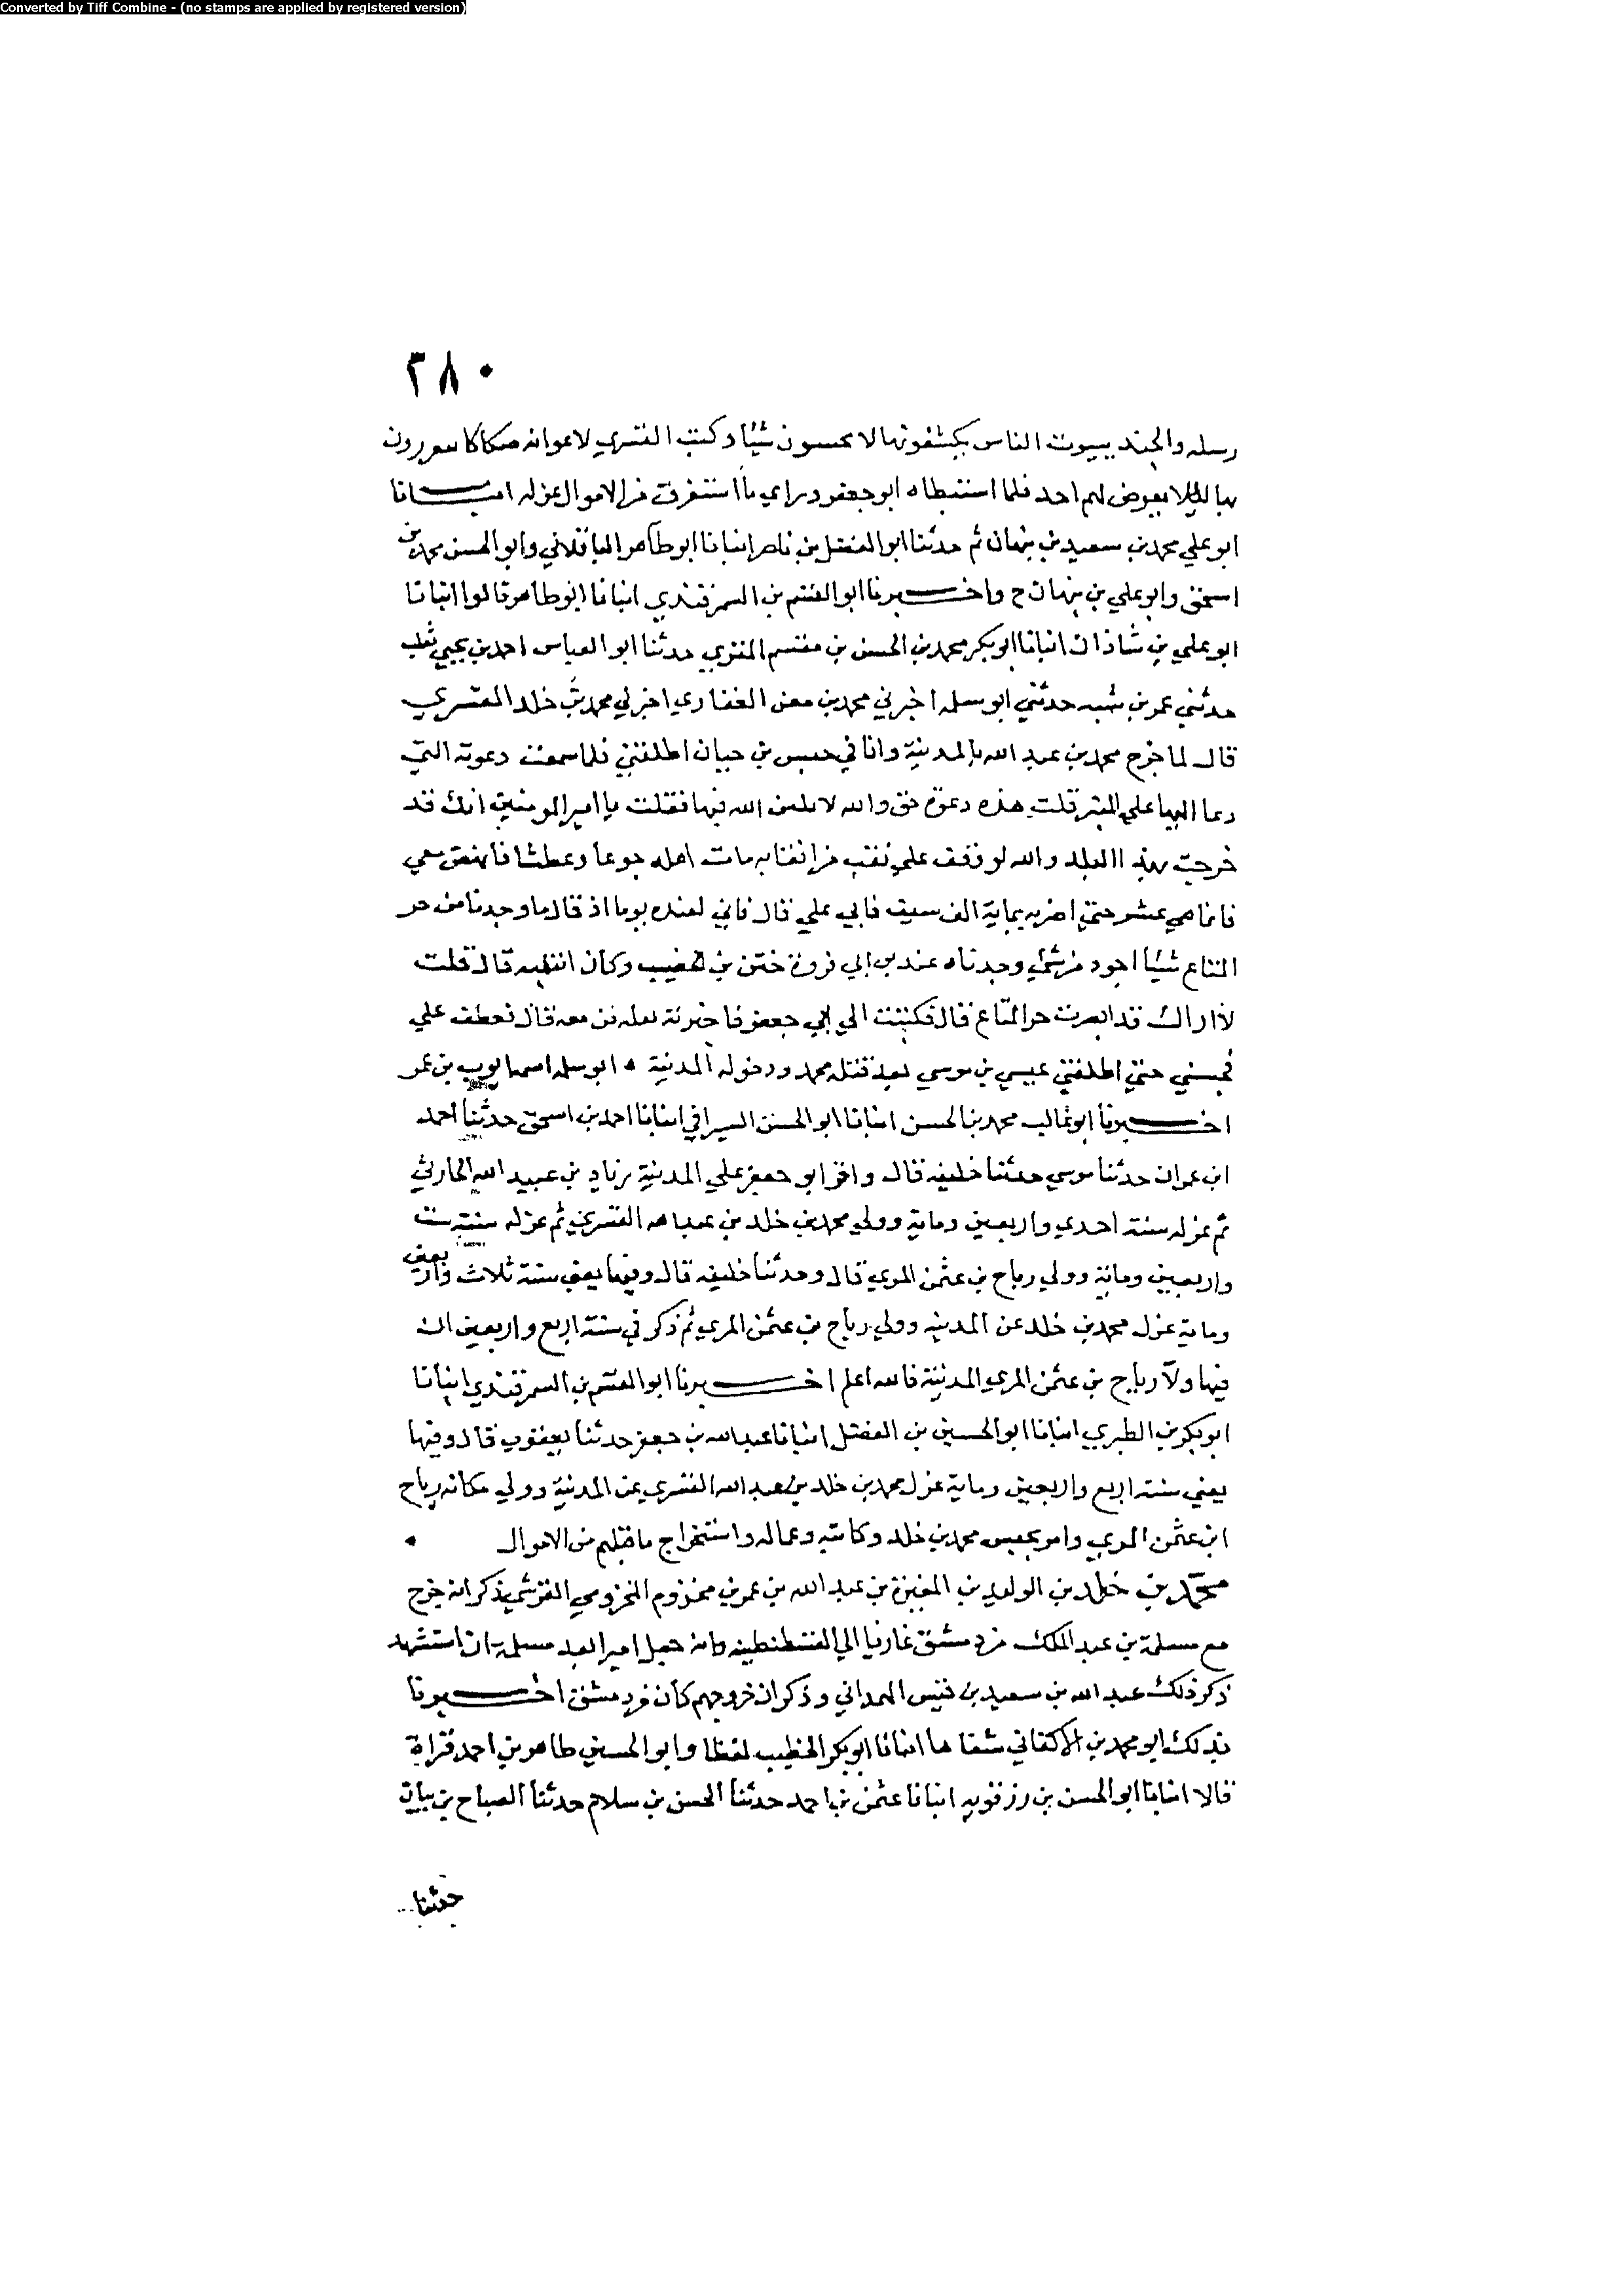 Converted by Tiff Combine - (no stamps are applied by registered version)
٣٨٠
رسله والجند ببيوت الناس يكشفونها لا يحسون شيئا وكتب القسري لاعوانه صكاكا يتعززون
بها لئلا يعرض لهم احد فلما استبطاه ابو جعفر وراي ما استغرق من الاموال عزله انبانا
ابو علي محمد بن سعيد بن نبهان ثم حدثنا ابو الفضل بن ناصر انبانا ابو طاهر الباقلاني وابو الحسن محمد بن
اسحق وابو علي بن نبهان ح واخبرنا ابو القسم بن السمرقندي انبانا ابو طاهر قالوا انبانا
ابو علي بن شاذان انبانا ابو بكر محمد بن الحسن بن مقسم المقري حدثنا ابو العباس احمد بن يحيي ثعلب
حدثني عمر بن شبه حدثني ابو سلمه اخبرني محمد بن معن الغفاري اخبرني محمد بن خلد القسري
قال لما خرج محمد بن عبد الله بالمدينة وانا في حبس بن حيان اطلقني فلما سمعت دعوته التي
دعا اليها علي المنبر قلت هذه دعوة حق والله لابلين الله فيها فقلت يا امير المومنين انك قد
خرجت بهذا البلد والله لو وقف علي نقب من انقابه مات اهله جوعا وعطشا فانهض معي
فانما هي عشر حتي اضربه بماية الف سيف فابي علي قال فاني لعنده يوما اذ قال ما وجدنا من حر
المتاع شيئا اجود من شي وجدناه عند بن ابي فروة ختن بن الخصيب وكان انتهبه قال قلت
لا اراك قد ابصرت حر المتاع قال فكتبت الي ابي جعفر فاخبرته بقلة من معه قال فعطف علي
فحبسني حتي اطلقني عيسي بن موسي بعد قتله محمد ودخوله المدينة ٠ ابو سلمه اسمه ايوب بن عمر
اخبرنا ابو غالب محمد بن الحسن انبانا ابو الحسن السيرافي انبانا احمد بن اسحق حدثنا احمد
ابن عمران حدثنا موسي حدثنا خليفه قال واقر ابو جعفر علي المدينة زياد بن عبيد الله الحارثي
ثم عزله سنة احدي واربعين وماية وولي محمد بن خلد بن عبد الله القسري ثم عزله سنة ست
واربعين وماية وولي رباح بن عثمن المري قال وحدثنا خليفه قال وفيها يعني سنة ثلاث واربعين
وماية عزل محمد بن خلد عن المدينه وولي رباح بن عثمن المري ثم ذكر في سنة اربع واربعين ان
فيها ولا رباح بن عثمن المري المدينة فالله اعلم اخبرنا ابو القسم بن السمرقندي انبانا
ابو بكر بن الطبري انبانا ابو الحسين بن الفضل انبانا عبد الله بن جعفر حدثنا يعقوب قال وفيها
يعني سنة اربع واربعين وماية عزل محمد بن خلد بن عبد الله القسري عن المدينة وولي مكانه رباح
ابن عثمن المري وامر بحبس محمد بن خلد وكاتبه وعماله واستخراج ما قبلهم من الاموال ٠
محمد بن خلد بن الوليد بن المغيرة بن عبد الله بن عمر بن مخزوم المخزومي القرشي ذكر انه خرج
مع مسلمة بن عبد الملك من دمشق غازيا الي القسطنطينيه وانه جعل اميرا بعد مسلمة ان استشهد
ذكر ذلك عبد الله بن سعيد بن قيس الهمداني وذكر ان خروجهم كان من دمشق اخبرنا
بذلك ابو محمد بن الاكفاني شفاها انبانا ابو بكر الخطيب لفظا وابو الحسين طاهر بن احمد قراة
قالا انبانا ابو الحسن بن رزقويه انبانا عثمن بن احمد حدثنا الحسن بن سلام حدثنا الصباح بن بيان
حدثنا